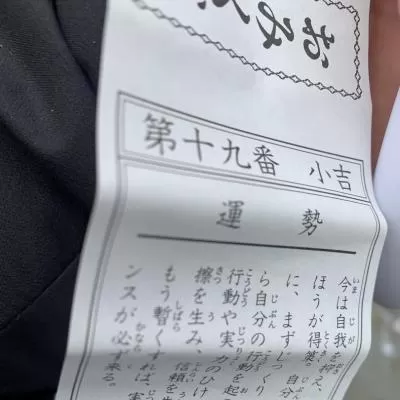 おみ
第十九番 小吉
運勢
今は自我を抑え、
ほうが得策。自分
に、まずじっくり
ら自分の行動を起
行動や実力のひけ
擦を生み、信頼を
もう暫くすれば、実
ンスが必ず来る。